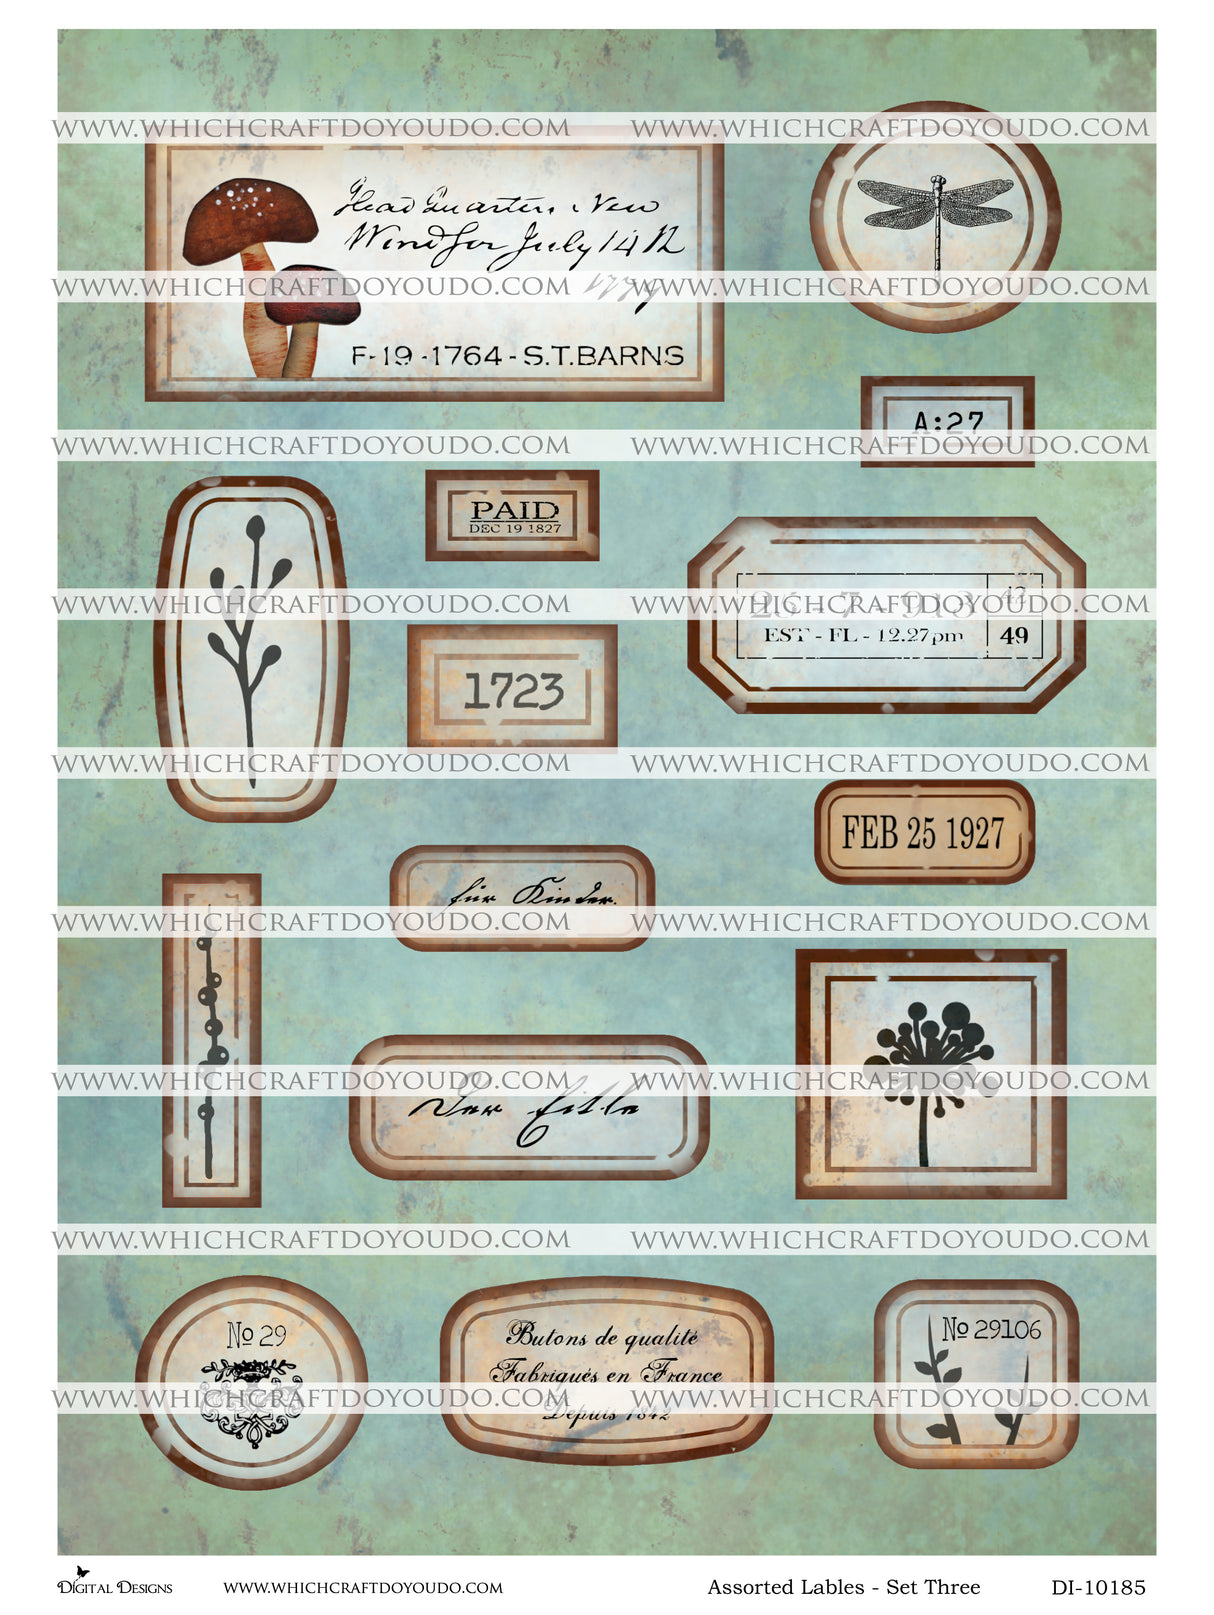 WWW.WHICHCRAFTDOYOUDO.COM WWW.WHICHCRAFTDOYOUDO.COM
Head Quarters, New
Windsor July 14
WWW.WHICHCRAFTDOYOUDO.COM WWW.WHICHCRAFTDOYOUDO.COM
F-19-1764-S.T.BARNS
A:27
WWW.WHICHCRAFTDOYOUDO.COM WWW.WHICHCRAFTDOYOUDO.COM
PAID
DEC 19 1827
WWW.WHICHCRAFTDOYOUDO.COM WWW.WHICHCRAFTDOYOUDO.COM
26 - 7 - 913 42
EST - FL - 12.27pm 49
1723
WWW.WHICHCRAFTDOYOUDO.COM WWW.WHICHCRAFTDOYOUDO.COM
FEB 25 1927
für Kinder.
WWW.WHICHCRAFTDOYOUDO.COM WWW.WHICHCRAFTDOYOUDO.COM
WWW.WHICHCRAFTDOYOUDO.COM WWW.WHICHCRAFTDOYOUDO.COM
Der
WWW.WHICHCRAFTDOYOUDO.COM WWW.WHICHCRAFTDOYOUDO.COM
No 29
Butons de qualité
Fabriqués en France
Depuis 1842
No 29106
WWW.WHICHCRAFTDOYOUDO.COM WWW.WHICHCRAFTDOYOUDO.COM
DIGITAL DESIGNS WWW.WHICHCRAFTDOYOUDO.COM Assorted Lables - Set Three DI-10185